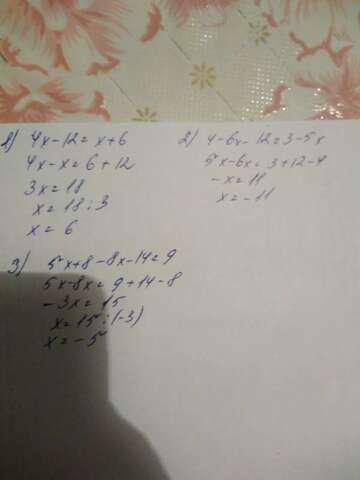 1) 4x-12=x+6
4x-x=6+12
3x=18
x=18:3
x=6
2) 4-6x-12=3-5x
5x-6x=3+12-4
-x=11
x=-11
3) 5x+8-8x-14=9
5x-8x=9+14-8
-3x=15
x=15:(-3)
x=-5